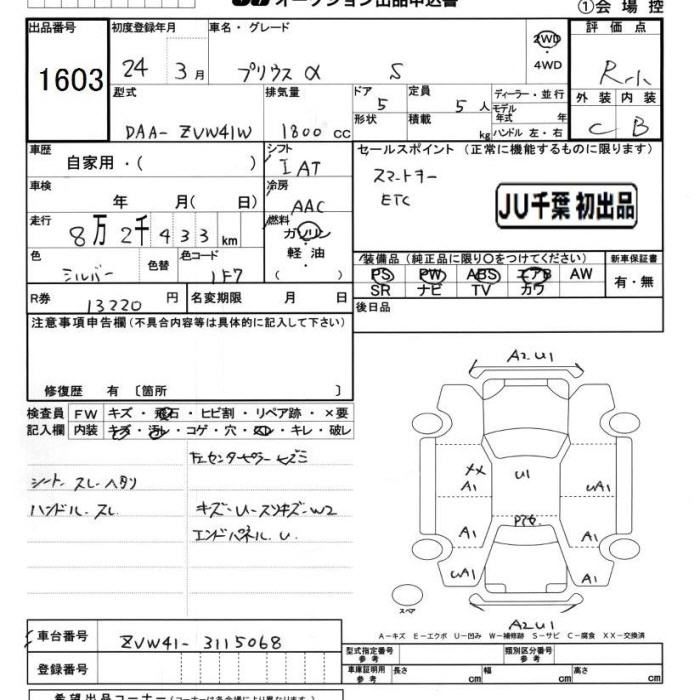 オークション出品申込書
①会場控
出品番号 初度登録年月 車名・グレード 評価点
1603
24 3月 プリウスα S 2WD
4WD
型式 排気量 ドア 定員 ディーラー・並行
モデル
年式 年
外装 内装
DAA-ZVW41W 1800cc 5 5人
形状 積載 kg ハンドル 左・右
C B
車歴 シフト セールスポイント (正常に機能するものに限ります)
自家用・( ) IAT
スマートキー
ETC
JU千葉 初出品
車検 冷房
年 月( 日) AAC
走行 燃料
8万2千433km ガソリン
・
軽油
( )
色 色替 色コード
シルバー 1F7
装備品 (純正品に限り○をつけてください) 新車保証書
PS PW ABS エアB AW 有・無
SR ナビ TV カワ
R券 13220円 名変期限 月 日 後日品
注意事項申告欄(不具合内容等は具体的に記入して下さい)
修復歴 有 〔箇所 〕
検査員 FW キズ・飛石・ヒビ割・リペア跡・×要
記入欄 内装 キズ・汚レ・コゲ・穴・スレ・キレ・破レ
シート スレ ヘタリ
ハンドル スレ
キズ-U-スリキズ-W2
エンドパネル U
A2U1
XX
A1 U1 UA1
A1 A1
UA1 A1
スペア
A2U1
A-キズ E-エクボ U-凹み W-補修跡 S-サビ C-腐食 XX-交換済
車台番号 ZVW41-3115068
登録番号
型式指定番号
参考
類別区分番号
参考
車庫証明用
参考
長さ cm 幅 cm 高さ cm
希望出品コーナー(コーナーは各会場により異なります)